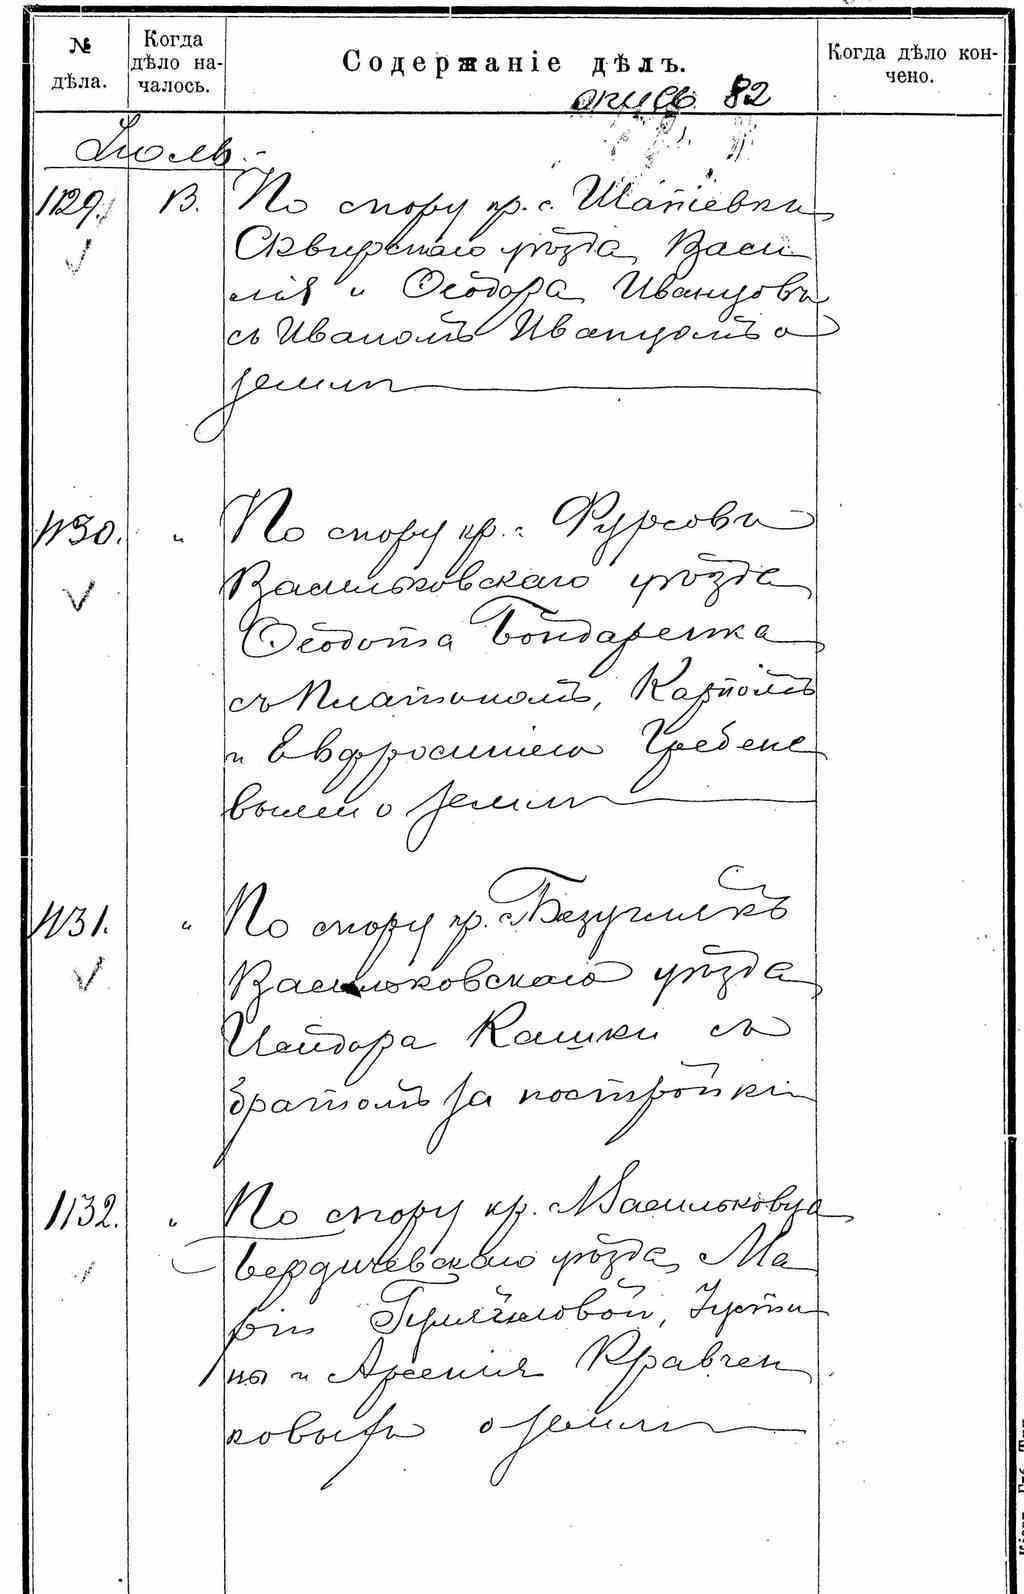 № дѣла.
Когда дѣло началось.
Содержаніе дѣлъ.
Когда дѣло кончено.
опись 82
Іюль
1129. 13. По спору кр. с.
Сквирскаго уѣзда, Васи
лія и Ѳеодора Иванцовъ
съ Иваномъ Иванцомъ о
землѣ
1130. " По спору кр. с. Фурсовъ
Васильковскаго уѣзда
Ѳеодота Бондаренка
съ Платономъ, Карпомъ
и Евфросиніею Гребене
выми о землѣ
1131. " По спору кр. с.
Васильковскаго уѣзда
Исидора Кашки съ
братомъ за постройки
1132. " По спору кр. м. Васильковца
Бердичевскаго уѣзда, Ма
ріи Іусти
ны и Арсенія Кравчен
ковыхъ о землѣ